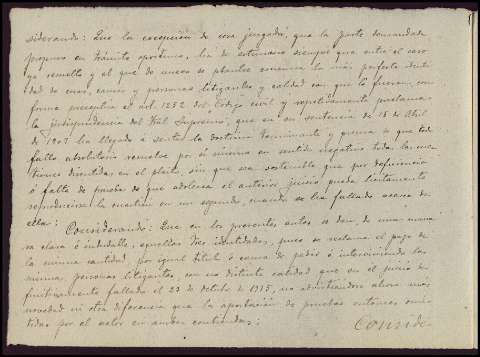 siderando: Que la excepción de cosa juzgada, que la parte demandada
propuso en trámite oportuno, ha de estimarse siempre que entre el caso
ya resuelto y el que de nuevo se plantee concurra la más perfecta identi-
dad de cosas, causas y personas litigantes y calidad con que lo fueron, con-
forme preceptua el art. 1252 del Código civil y repetidamente proclama
la jurisprudencia del Trial Supremo, que en su sentencia de 15 de Abril
de 1907 ha llegado a sentar la doctrina terminante y precisa de que todo
fallo absolutorio resuelve por si mismo en sentido negativo todas las cues-
tiones discutidas en el pleito, sin que sea sostenible que por deficiencia
ó falta de prueba de que adolezca el anterior juicio pueda licitamente
reproducirse la cuestion en un segundo, cuando se ha fallado acerca de
ella: Considerando: Que en los presentes autos se dan de una mane-
ra clara é indudable, aquellas tres identidades, pues se reclama el pago de
la misma cantidad, por igual titulo ó causa de pedir é interviniendo las
mismas personas litigantes, con no distinta calidad que en el juicio de-
finitivamente fallado el 23 de Octubre de 1915, no advirtiendose ahora más
novedad ni otra diferencia que la aportación de pruebas entonces omi-
tidas por el actor en ambas contiendas;
Conside-